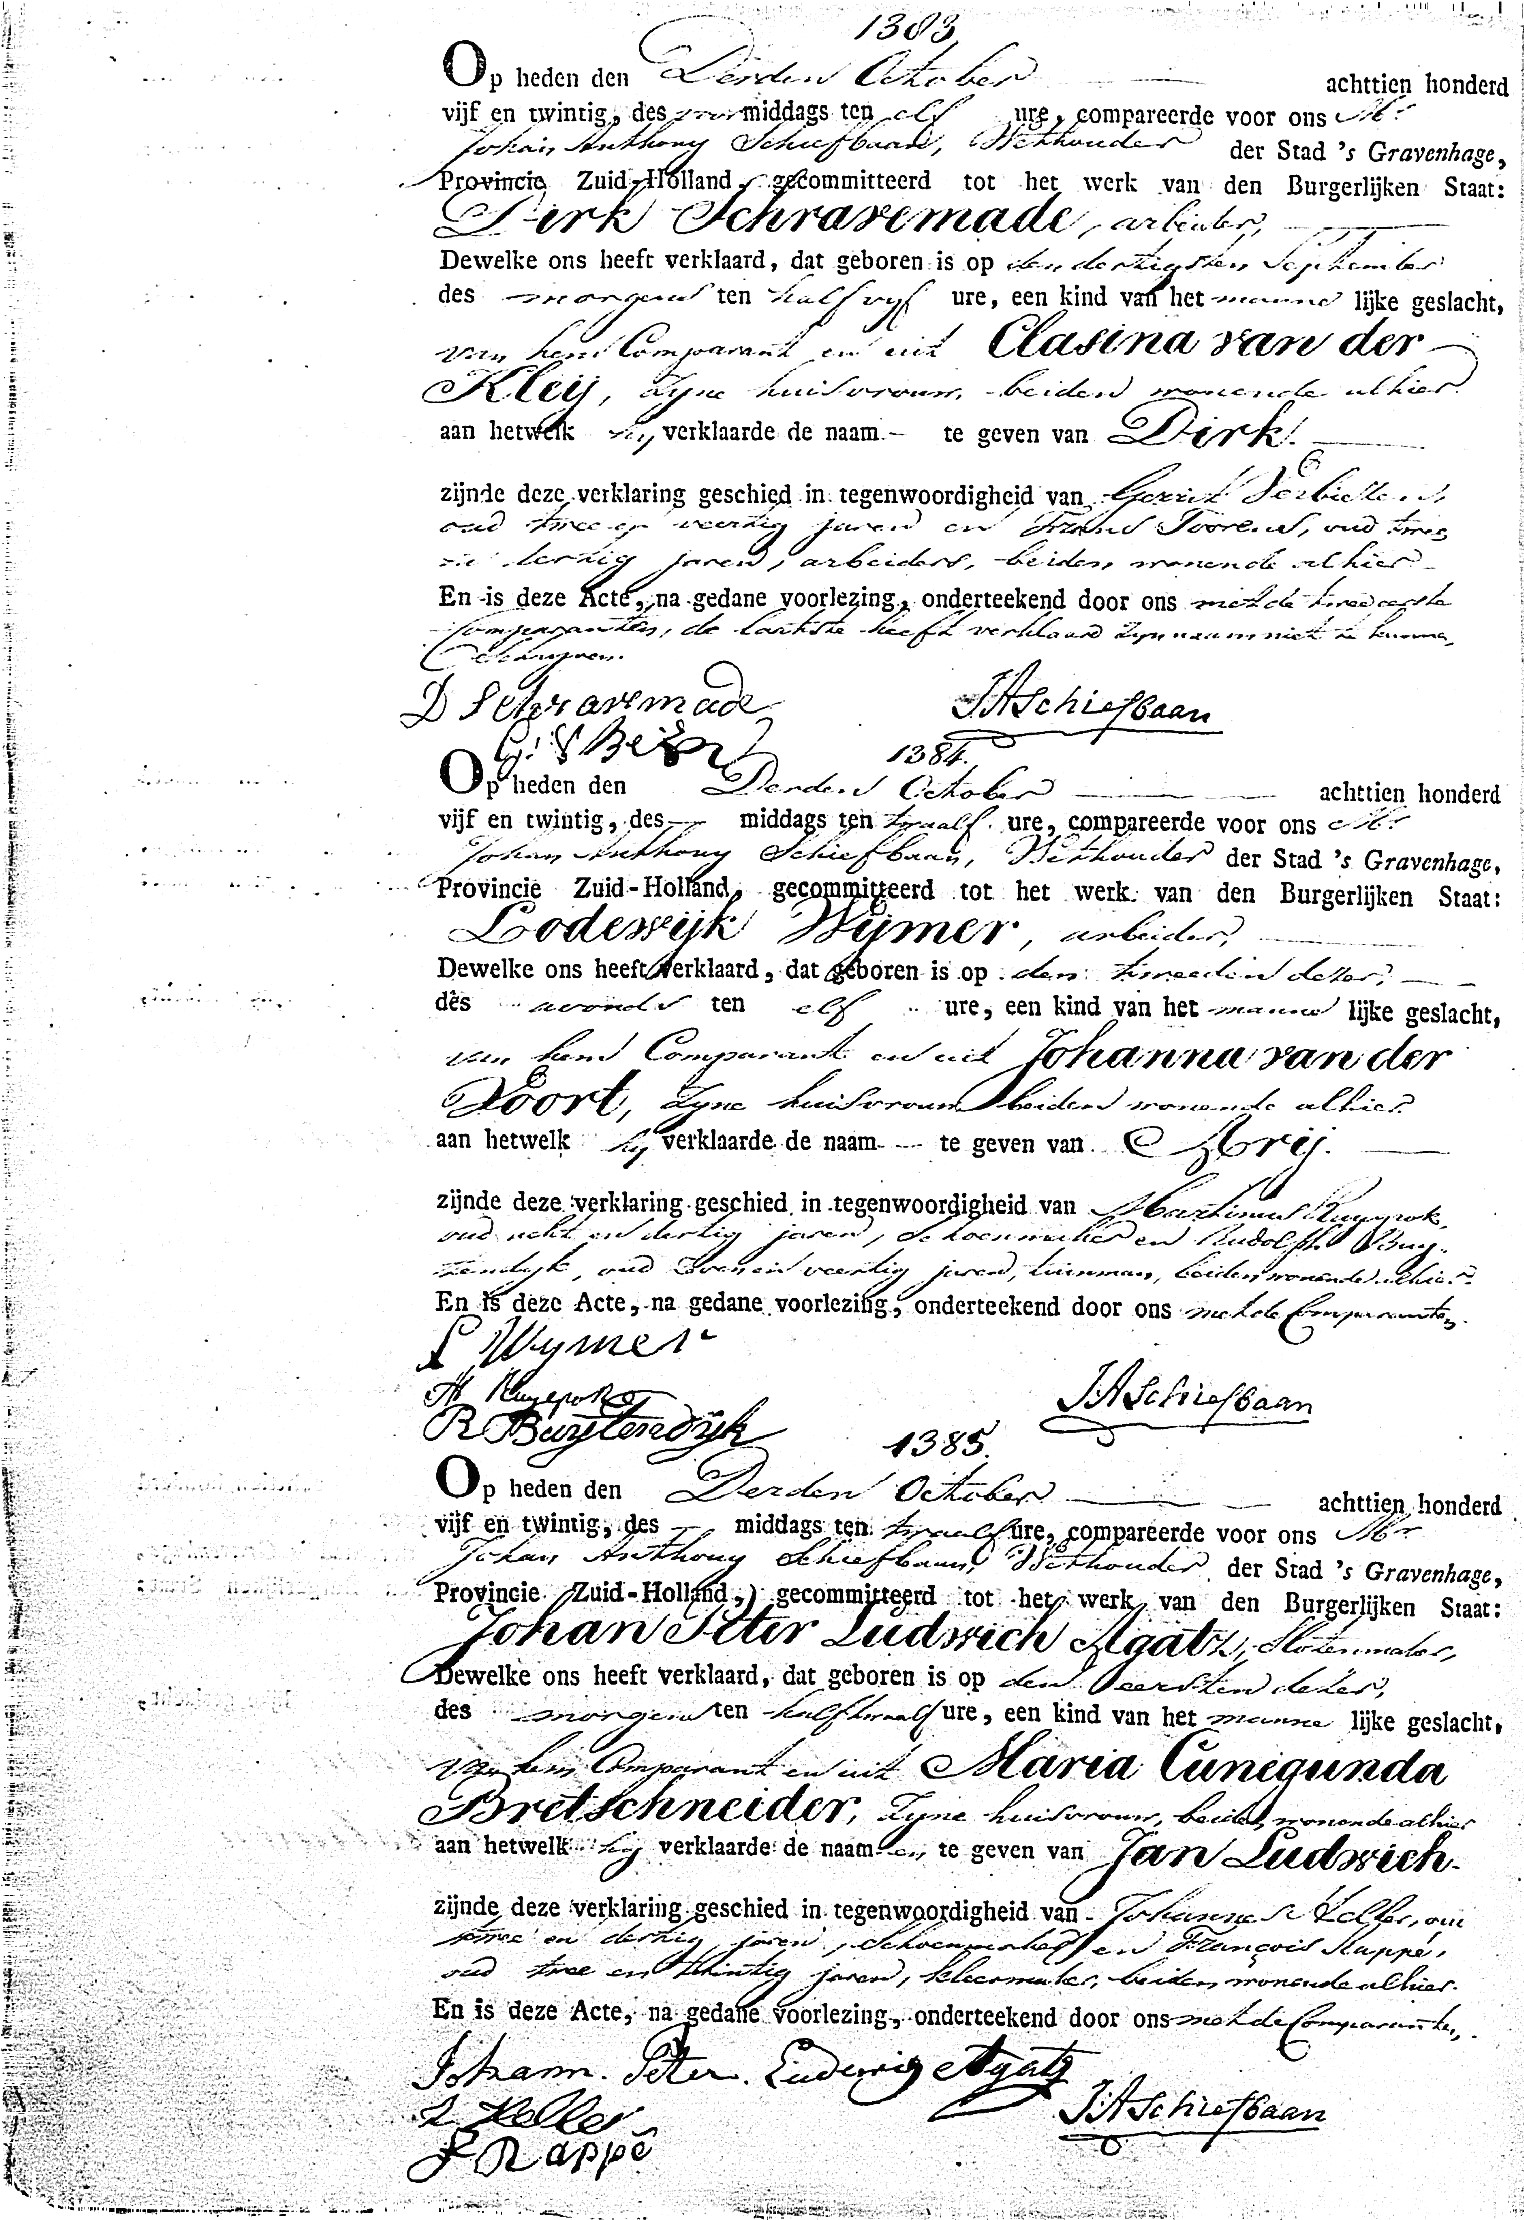 1383
Op heden den Derden October achttien honderd
vijf en twintig, des voormiddags ten elf ure, compareerde voor ons Mr
Johan Anthony Schiefbaan, Wethouder der Stad 's Gravenhage,
Provincie Zuid-Holland, gecommitteerd tot het werk van den Burgerlijken Staat:
Dirk Schravemade, arbeider,
Dewelke ons heeft verklaard, dat geboren is op den dertigsten September
des morgens ten half vyf ure, een kind van het manne lijke geslacht,
van hem Comparant en uit Clasina van der
Kleij, zyne huisvrouw, beiden wonende alhier
aan hetwelk hy verklaarde de naam te geven van Dirk.
zijnde deze verklaring geschied in tegenwoordigheid van Gerrit
oud twee en veertig jaren en Frans Toorens, oud twee
en dertig jaren, arbeiders, beiden wonende alhier
En is deze Acte, na gedane voorlezing, onderteekend door ons met de twee eerste
Comparanten, de laatste heeft verklaard zyn naam niet te kunnen
schryven.
D Schravemade JASchiefbaan
1384.
Op heden den Derden October achttien honderd
vijf en twintig, des middags ten twaalf ure, compareerde voor ons Mr
Johan Anthony Schiefbaan, Wethouder der Stad 's Gravenhage,
Provincie Zuid-Holland, gecommitteerd tot het werk van den Burgerlijken Staat:
Lodewijk Wijmer, arbeider,
Dewelke ons heeft verklaard, dat geboren is op den tweeden dezer,
des avonds ten elf ure, een kind van het manne lijke geslacht,
van hem Comparant en uit Johanna van der
Voort, zyne huisvrouw beiden wonende alhier
aan hetwelk hy verklaarde de naam te geven van Arij.
zijnde deze verklaring geschied in tegenwoordigheid van Martinus Ruygrok,
oud acht en dertig jaren, schoenmaker en Rudolph Buy-
tendyk, oud zeven en veertig jaren, tuinman, beiden wonende alhier.
En is deze Acte, na gedane voorlezing, onderteekend door ons met de Comparanten.
L Wymer
M JASchiefbaan
R Buytendyk
1385.
Op heden den Derden October achttien honderd
vijf en twintig, des middags ten twaalf ure, compareerde voor ons Mr
Johan Anthony Schiefbaan, Wethouder der Stad 's Gravenhage,
Provincie Zuid-Holland, gecommitteerd tot het werk van den Burgerlijken Staat:
Johan Peter Ludwich Agatz, Slotenmaker,
Dewelke ons heeft verklaard, dat geboren is op den eersten dezer,
des morgens ten half twaalf ure, een kind van het manne lijke geslacht,
van hem Comparant en uit Maria Cunegunda
Bretschneider, zyne huisvrouw, beiden wonende alhier
aan hetwelk hy verklaarde de naamen te geven van Jan Ludwich.
zijnde deze verklaring geschied in tegenwoordigheid van Johannes Keller, oud
twee en dertig jaren, schoenmaker en François Rappé,
oud twee en twintig jaren, kleermaker, beiden wonende alhier.
En is deze Acte, na gedane voorlezing, onderteekend door ons met de Comparanten,
Johann. Peter. Ludewig Agatz
Keller JASchiefbaan
F Rappé